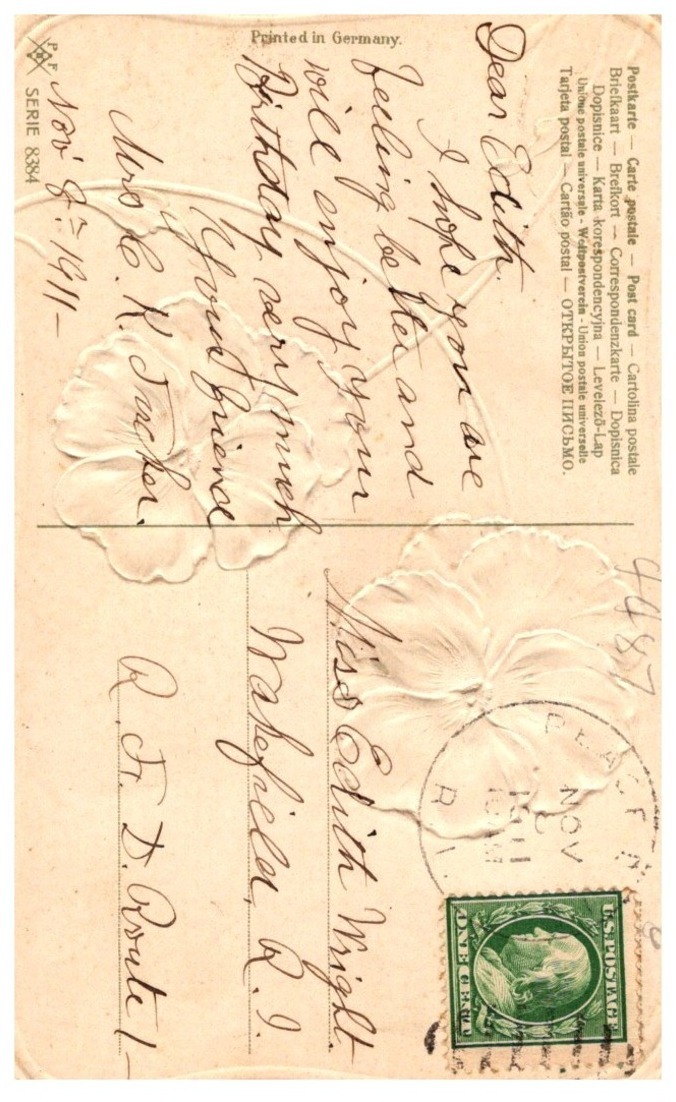 Postkarte — Carte postale — Post card — Cartolina postale
Briefkaart — Brefkort — Correspondenzkarte — Dopisnica
Dopisnice — Karta korespondencyjna — Levelező-Lap
Unione postale universale - Weltpostverein - Union postale universelle
Tarjeta postal — Cartão postal — ОТКРЫТОЕ ПИСЬМО.
Dear Edith.
I hope you are
feeling better and
will enjoy your
Birthday very much
Your friend
Mrs. C. K. Tucker.
Nov 8th-1911-
Printed in Germany.
P F B
SERIE 8384
4487
NOV
1911
R.I.
U.S. POSTAGE
ONE CENT
Miss Edith Wright
Wakefield, R.I.
R. F. D. Route 1-